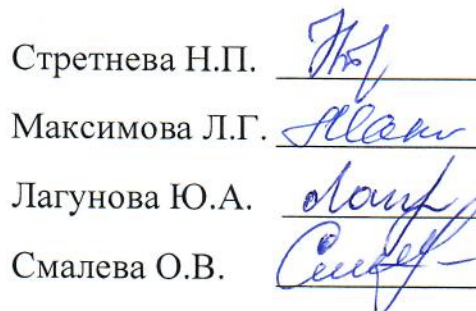 Стретнева Н.П.
Максимова Л.Г.
Лагунова Ю.А.
Смалева О.В.